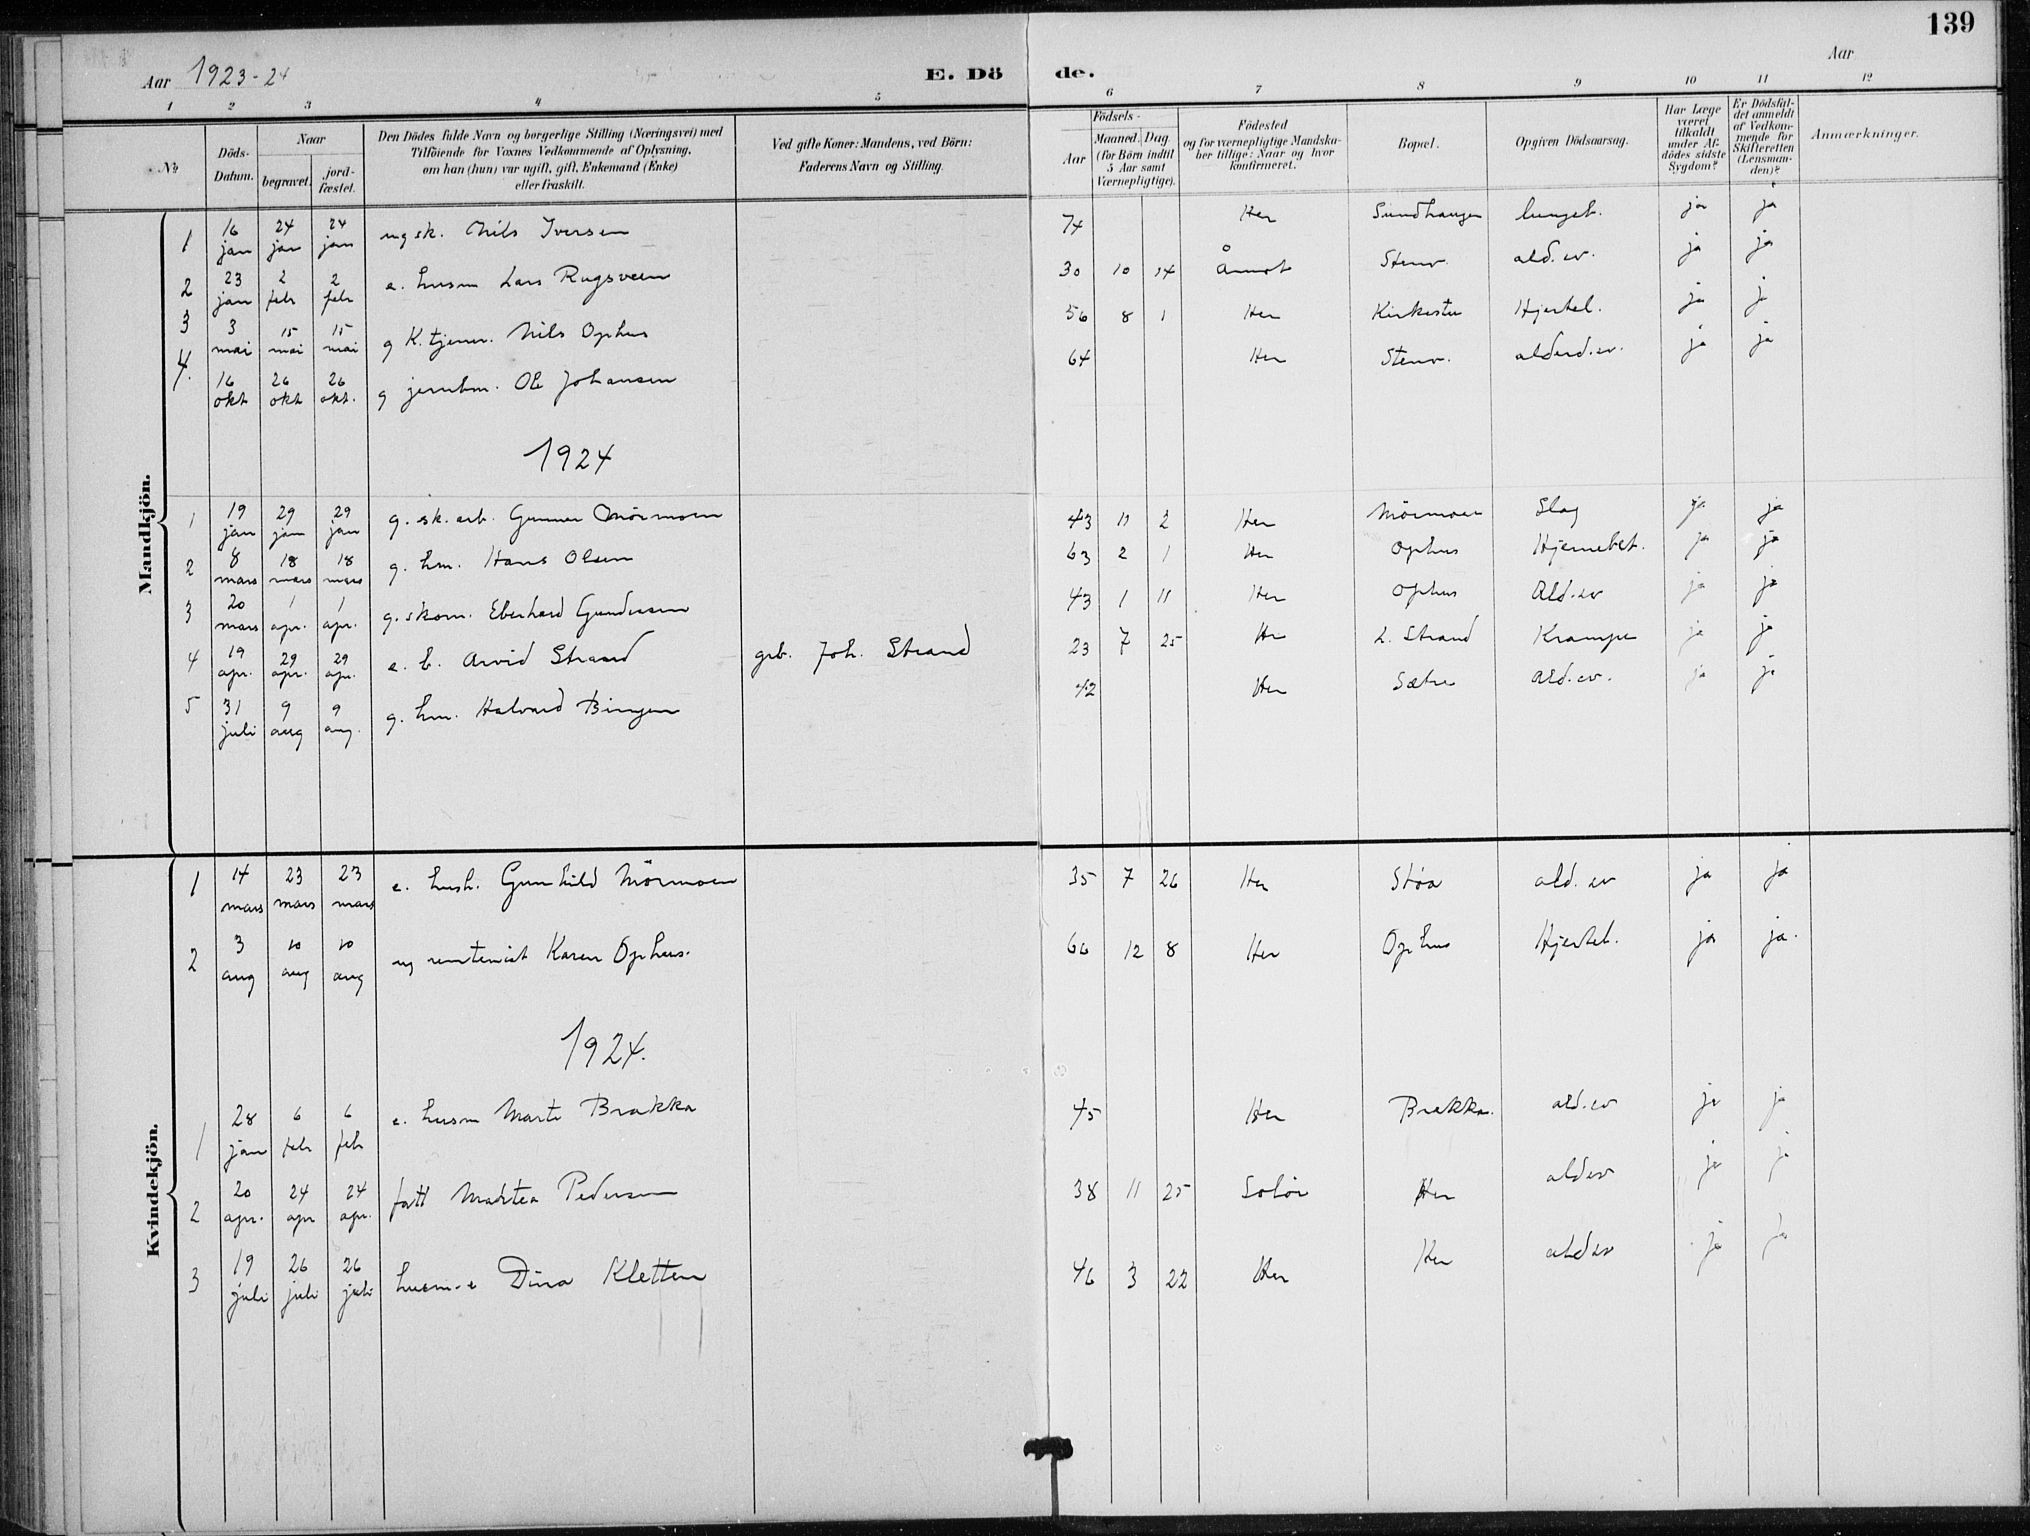 139
Aar 1923-24
E. Dö de.
Aar
1 2 3 4 5 6 7 8 9 10 11 12
No
Döds-Datum.
Naar
begravet.
jord-fæstet.
Den Dödes fulde Navn og borgerlige Stilling (Næringsvei) med
Tilföiende for Voxnes Vedkommende af Oplysning,
om han (hun) var ugift, gift, Enkemand (Enke)
eller fraskilt.
Ved gifte Koner: Mandens, ved Börn:
Faderens Navn og Stilling.
Födsels-
Aar
Maaned. Dag.
(for Börn indtil
5 Aar samt
Værnepligtige).
Födested
og for værnepligtige Mandska-
ber tillige: Naar og hvor
konfirmeret.
Bopæl.
Opgiven Dödsaarsag.
Har Læge
været
tilkaldt
under Af-
dödes sidste
Sygdom?
Er Dödsfal-
det anmeldt
af Vedkom-
mende for
Skifteretten
(Lensman-
den)?
Anmærkninger.
Mandkjön.
1 16 jan 24 jan 24 jan ug sk. Nils Iversen 74 Her Sundhaugen lunget. ja ja
2 23 jan 2 febr 2 febr e. husm Lars Rugsveen 30 10 14 Åmot Stenv. ald. sv. ja ja
3 3 mai 15 mai 15 mai g K. tjener. Nils Ophus 56 8 1 Her Kirkestu Hjertel. ja ja
4. 16 okt 26 okt 26 okt. g jernbm. Ole Johansen 64 Her Stenv. alderd. sv. ja ja
1924
1 19 jan 29 jan 29 jan g. sk. arb. Gunnar Mörmoen 43 11 2 Her Mörmoen Slag ja ja
2 8 mars 18 mars 18 mars g. hm. Hans Olsen 63 2 1 Her Ophus Hjernebet. ja ja
3 20 mars 1 apr. 1 apr. g. skom. Eberhard Gundersen 43 1 11 Her Ophus Ald. sv ja ja
4 19 apr. 29 apr. 29 apr. e. b. Arvid Strand grb. Joh. Strand 23 7 25 Her L. Strand Krampe ja ja
5 31 juli 9 aug 9 aug. g. hm. Halvard Bingen 42 Her Sætre ald. sv. ja ja
Kvindekjön.
1 14 mars 23 mars 23 mars e. hush. Gunhild Mörmoen 35 7 26 Her Støa ald. sv ja ja
2 3 aug 10 aug 10 aug ug rentenist Karen Ophus. 66 12 8 Her Ophus Hjertel. ja ja.
1924.
1 28 jan 6 febr 6 feb e. husm Marte Brakka 45 Her Brakka. ald. sv ja ja
2 20 apr. 24 apr 24 apr. fatt Martea Pedersen 38 11 25 Solör Her aldsv ja ja
3 19 juli 26 juli 26 juli husm. e Dina Kletten 46 3 22 Her Her aldsv ja ja